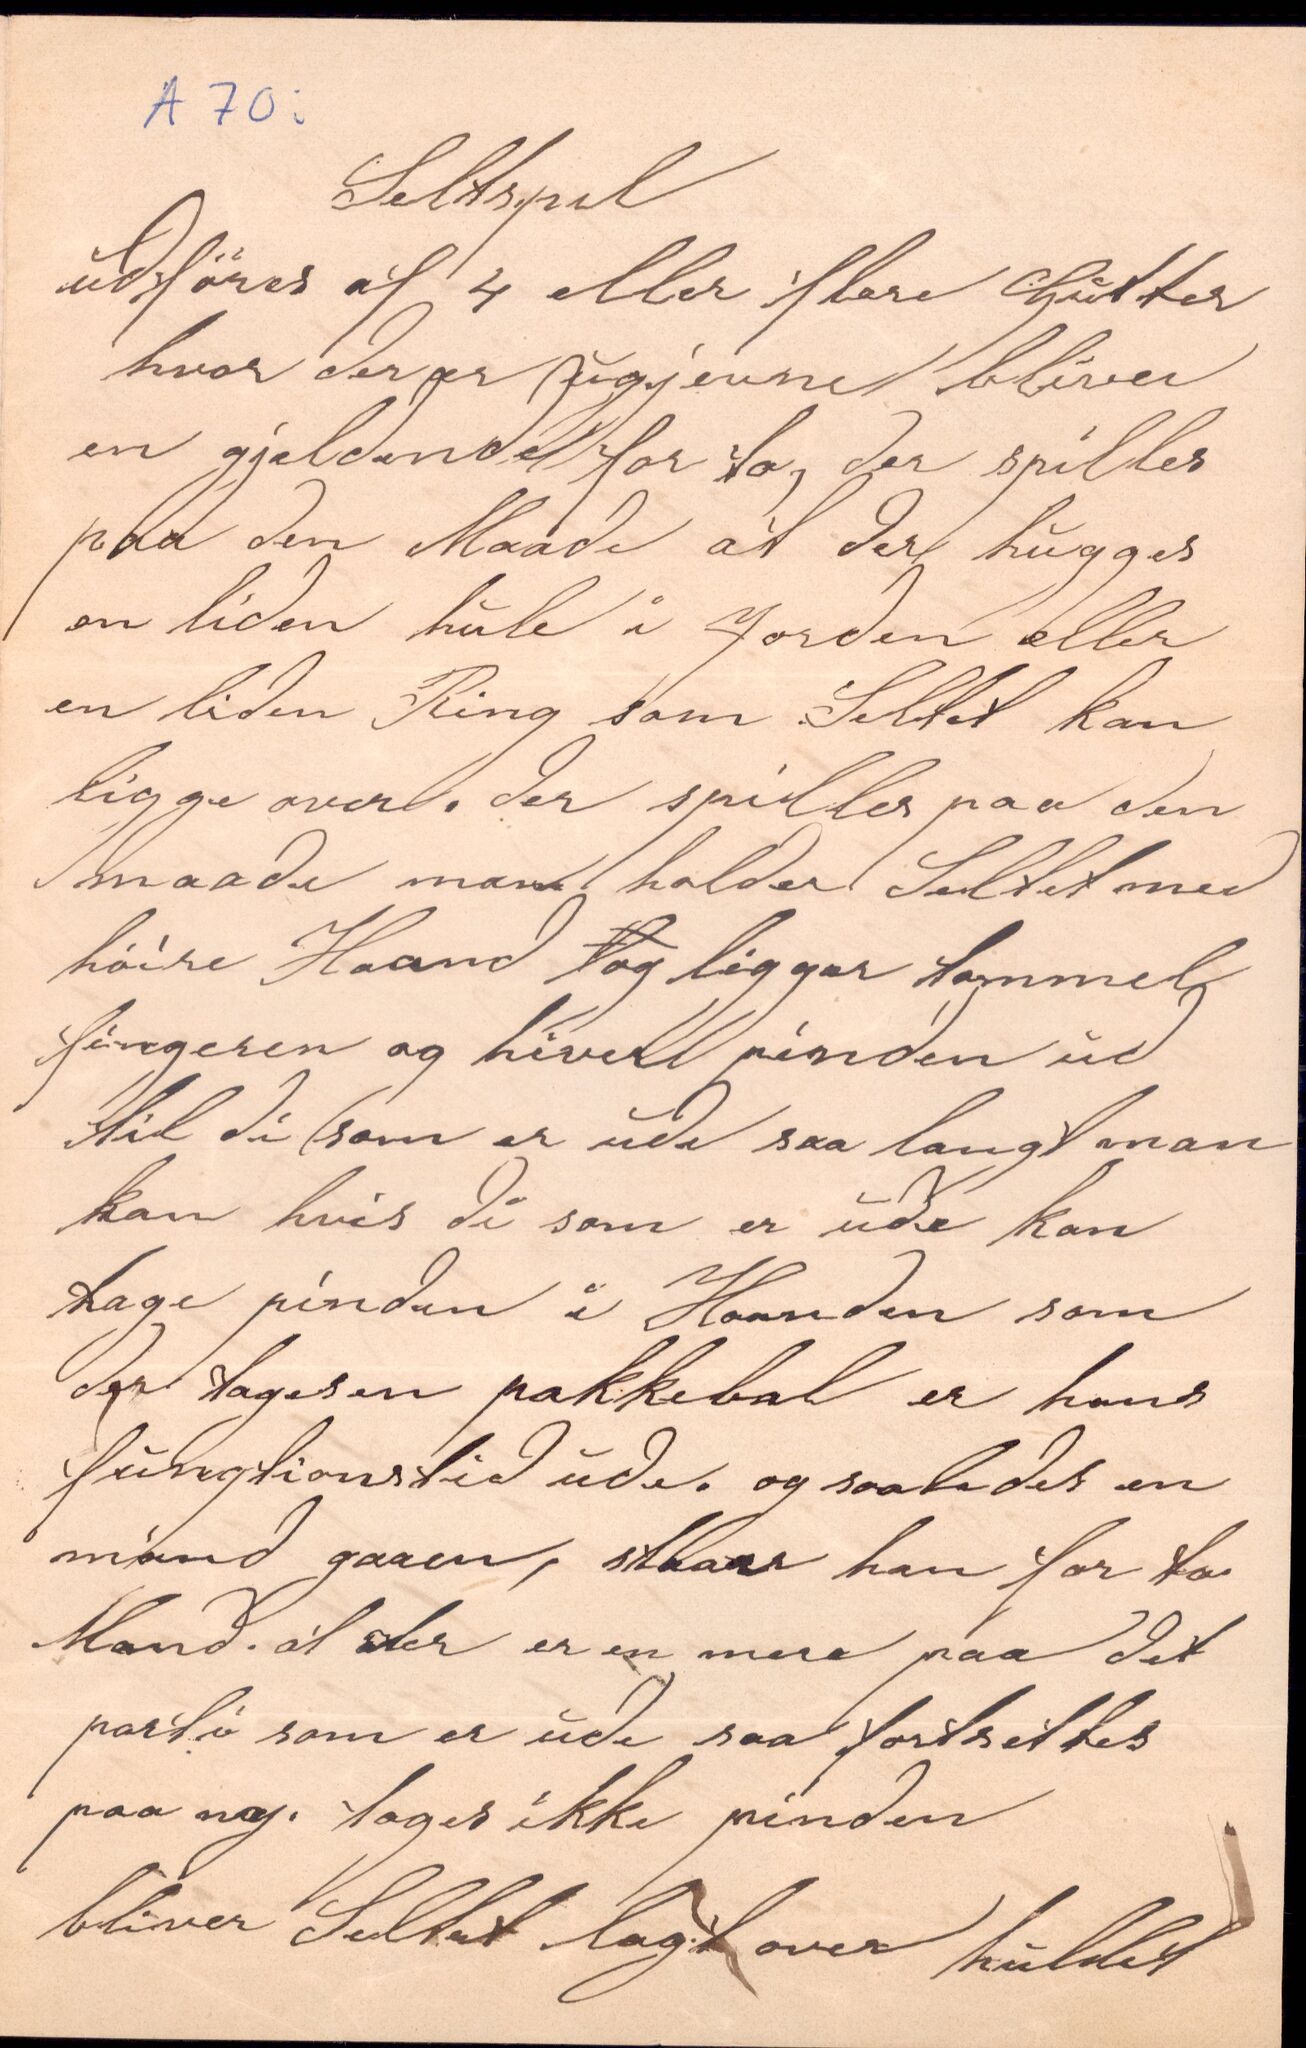 A 70:
Seltspil
udföres af 4 eller flere Gutter
hvor der er ugjevne bliver
en gjeldende for to, der spilles
paa den Maade at der hugges
en liden hule i Jorden eller
en liden Ring som Seltet kan
ligge over. der spilles paa den
maade man holder Seltet med
höire Haand og ligger tommel
fingeren og hiver pinden ud
til di som er ude saa langt man
kan hvis di som er ude kan
tage pinden i Haanden som
der tages en pakkebal er hans
fungtionstid ude. og saaledes en
mand gaaen, staar han for to
Mand. at der er en mere paa det
parti som er ude saa fortsettes
paa ny. tages ikke pinden
bliver Seltet lagt over hullet